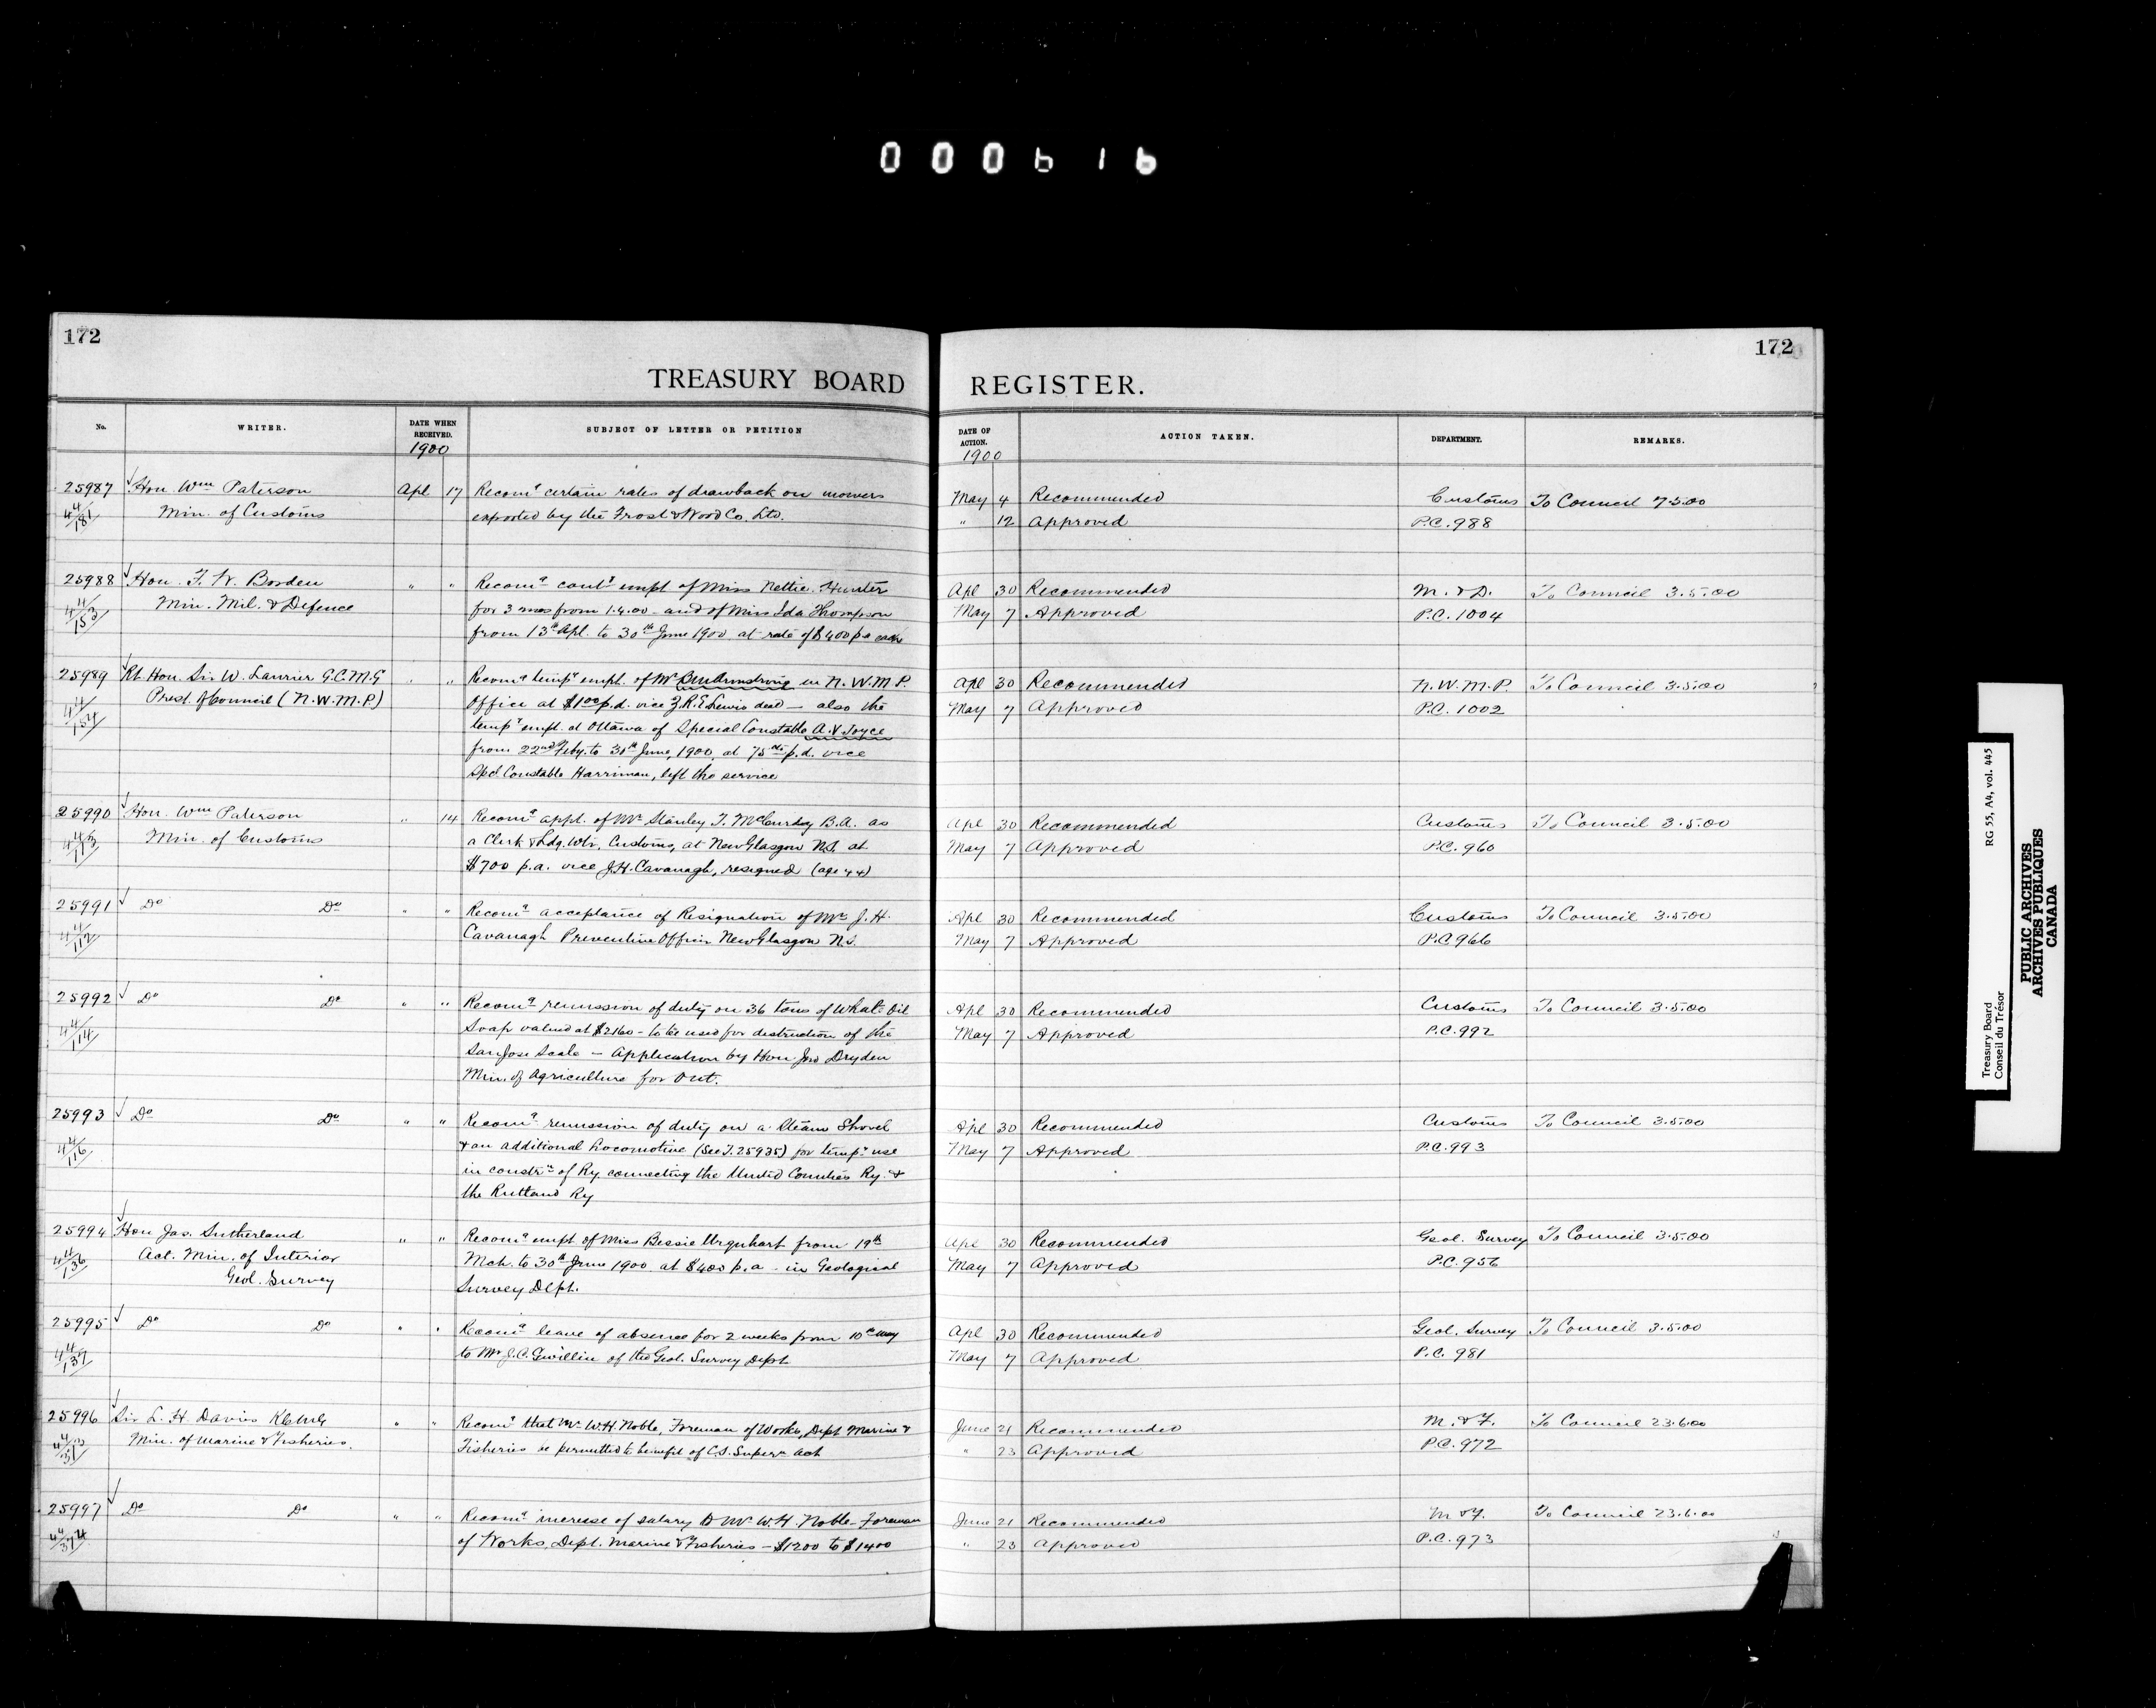 000616
172
172
TREASURY BOARD REGISTER.
No. WRITER. DATE WHEN RECEIVED. SUBJECT OF LETTER OR PETITION
DATE OF ACTION. ACTION TAKEN. DEPARTMENT. REMARKS.
1900
1900
25987 Hon. Wm Paterson Apl 17 Recomg certain rates of drawback on mowers May 4 Recommended Customs To Council 7.5.00
44/181 Min. of Customs exported by the Frost & Wood Co. Ltd. " 12 Approved P.C. 988
25988 Hon. F. W. Borden " " Recomg contd empt of Miss Nettie Hunter Apl 30 Recommended M. & D. To Council 3.5.00
44/153 Min. Mil. & Defence for 3 mos from 1.4.00 and of Miss Ida Thompson May 7 Approved P.C. 1004
from 13th Apl. to 30th June 1900 at rate of $400 p a each
25989 Rt Hon. Sir W. Laurier G.C.M.G " " Recomg tempy empt. of Mr Armstrong in N.W.M.P. Apl 30 Recommended N.W.M.P. To Council 3.5.00
44/154 Prest. of Council (N.W.M.P.) Office at $1.00 p.d. vice Z.R.E. Lewis dead — also the May 7 Approved P.C. 1002
tempy empt. at Ottawa of Special Constable A.V. Joyce
from 22nd Feby. to 30th June, 1900, at 75cts p.d. vice
Spcl Constable Harriman, left the service
25990 Hon. Wm Paterson " 14 Recomg appt. of Mr Stanley T. McCurdy B.A. as Apl 30 Recommended Customs To Council 3.5.00
44/113 Min. of Customs a Clerk & Ldg. Wtr, Customs, at New Glasgow N.S. at May 7 Approved P.C. 960
$700 p.a. vice J.H. Cavanagh, resigned (age 44)
25991 Do Do " " Recomg acceptance of Resignation of Mr J.H. Apl 30 Recommended Customs To Council 3.5.00
44/112 Cavanagh Preventive Officer New Glasgow N.S. May 7 Approved P.C. 966
25992 Do Do " " Recomg remission of duty on 36 tons of Whale Oil Apl 30 Recommended Customs To Council 3.5.00
44/114 Soap valued at $2160 - to be used for destruction of the May 7 Approved P.C. 992
San Jose Scale — Application by Hon. Jno Dryden
Min. of Agriculture for Ont.
25993 Do Do " " Recomg remission of duty on a Steam Shovel Apl 30 Recommended Customs To Council 3.5.00
44/116 & an additional Locomotive (See T. 25935) for tempy use May 7 Approved P.C. 993
in constrn of Ry. connecting the United Counties Ry. &
the Rutland Ry
25994 Hon Jas. Sutherland " " Recomg empt of Miss Bessie Urquhart from 19th Apl 30 Recommended Geol. Survey To Council 3.5.00
44/136 Act. Min. of Interior Mch. to 30th June 1900 at $400 p.a - in Geological May 7 Approved P.C. 956
Geol. Survey Survey Dept.
25995 Do Do " " Recomg leave of absence for 2 weeks from 10th May Apl 30 Recommended Geol. Survey To Council 3.5.00
44/137 to Mr J.C. Gwillim of the Geol. Survey Dept May 7 Approved P.C. 981
25996 Sir L. H. Davies KCMG " " Recomg that Mr W.H. Noble, Foreman of Works, Dept Marine & June 21 Recommended M. & F. To Council 23.6.00
Min. of Marine & Fisheries. Fisheries be permitted to benefit of C.S. Supern Act " 23 Approved P.C. 972
25997 Do Do " " Recomg increase of salary to Mr W.H. Noble - Foreman June 21 Recommended M & F. To Council 23.6.00
of Works, Dept. Marine & Fisheries — $1200 to $1400 " 23 Approved P.C. 973
Treasury Board RG 55, A4, vol. 445
Conseil du Trésor
PUBLIC ARCHIVES
ARCHIVES PUBLIQUES
CANADA